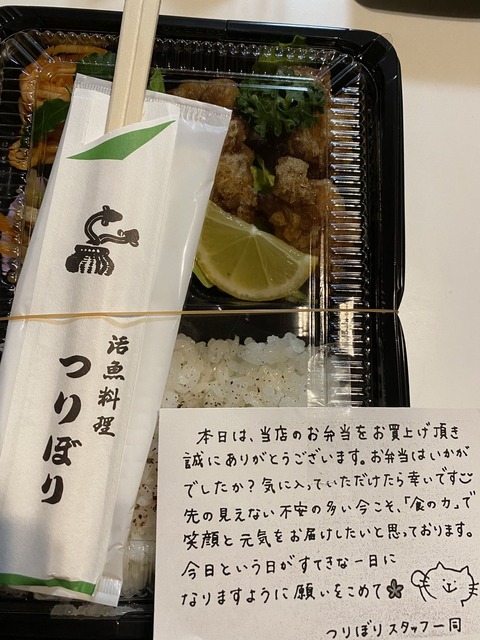 活魚料理
つりぼり
本日は、当店のお弁当をお買上げ頂き
誠にありがとうございます。お弁当はいかが
でしたか？気に入っていただけたら幸いです
先の見えない不安の多い今こそ、「食の力」で
笑顔と元気をお届けしたいと思っております。
今日という日がすてきな一日に
なりますように願いをこめて
つりぼりスタッフ一同